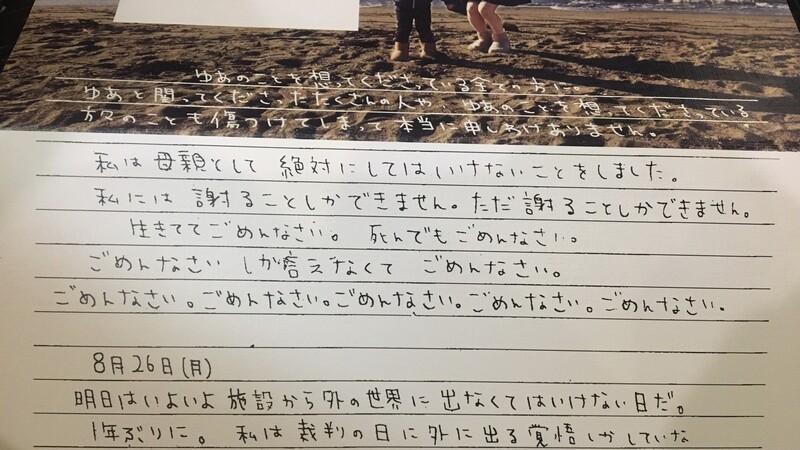 ゆあのことを想ってくださっている全ての方に。
ゆあと関ってくださったたくさんの人や、ゆあのことを想ってくださっている
方々のことも傷つけてしまって本当に申しわけありません。
私は母親として絶対にしてはいけないことをしました。
私には謝ることしかできません。ただ謝ることしかできません。
生きててごめんなさい。死んでもごめんなさい。
ごめんなさいしか言えなくてごめんなさい。
ごめんなさい。ごめんなさい。ごめんなさい。ごめんなさい。ごめんなさい。
8月26日(月)
明日はいよいよ施設から外の世界に出なくてはいけない日だ。
1年ぶりに。私は裁判の日に外に出る覚悟しかしていな